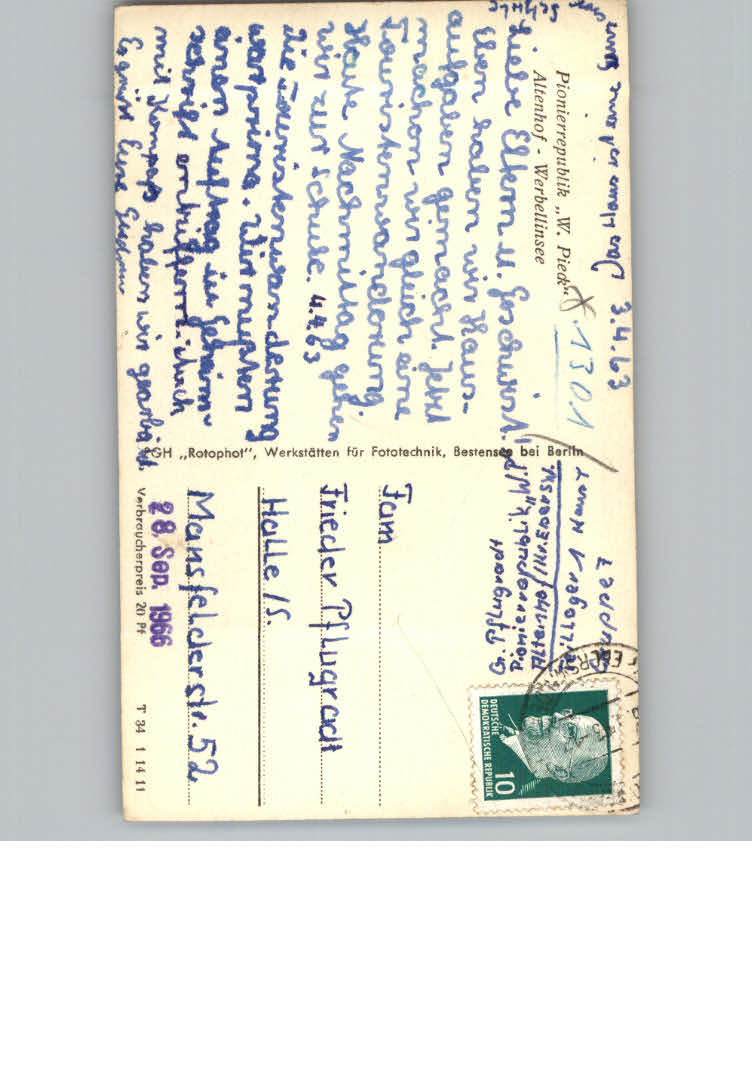 Pionierrepublik „W. Pieck“
Altenhof - Werbellinsee
3.4.63
1301
Liebe Eltern u. Geschwist.!
Eben haben wir Haus-
aufgaben gemacht. Jetzt
machen wir gleich eine
Touristenwanderung.
Heute Nachmittag gehen
wir zur Schule. 4.4.63
Die Touristenwanderung
war prima. Wir mußten
einen Auftrag in Geheim-
schrift entziffern. Auch
mit Kompaß haben wir gearbeit.
Es grüßt Eure
PGH „Rotophot“, Werkstätten für Fototechnik, Bestensee bei Berlin
G. Pflugradt
Pionierrepublik „W.P.“
Altenhof / Kr. Eberswl.
Lager 1
DEUTSCHE
DEMOKRATISCHE REPUBLIK
10
Fam.
Frieder Pflugradt
Halle/S.
Mansfelderstr. 52
28. Sep. 1966
Verbraucherpreis 20 Pf
T 34 1 14 11